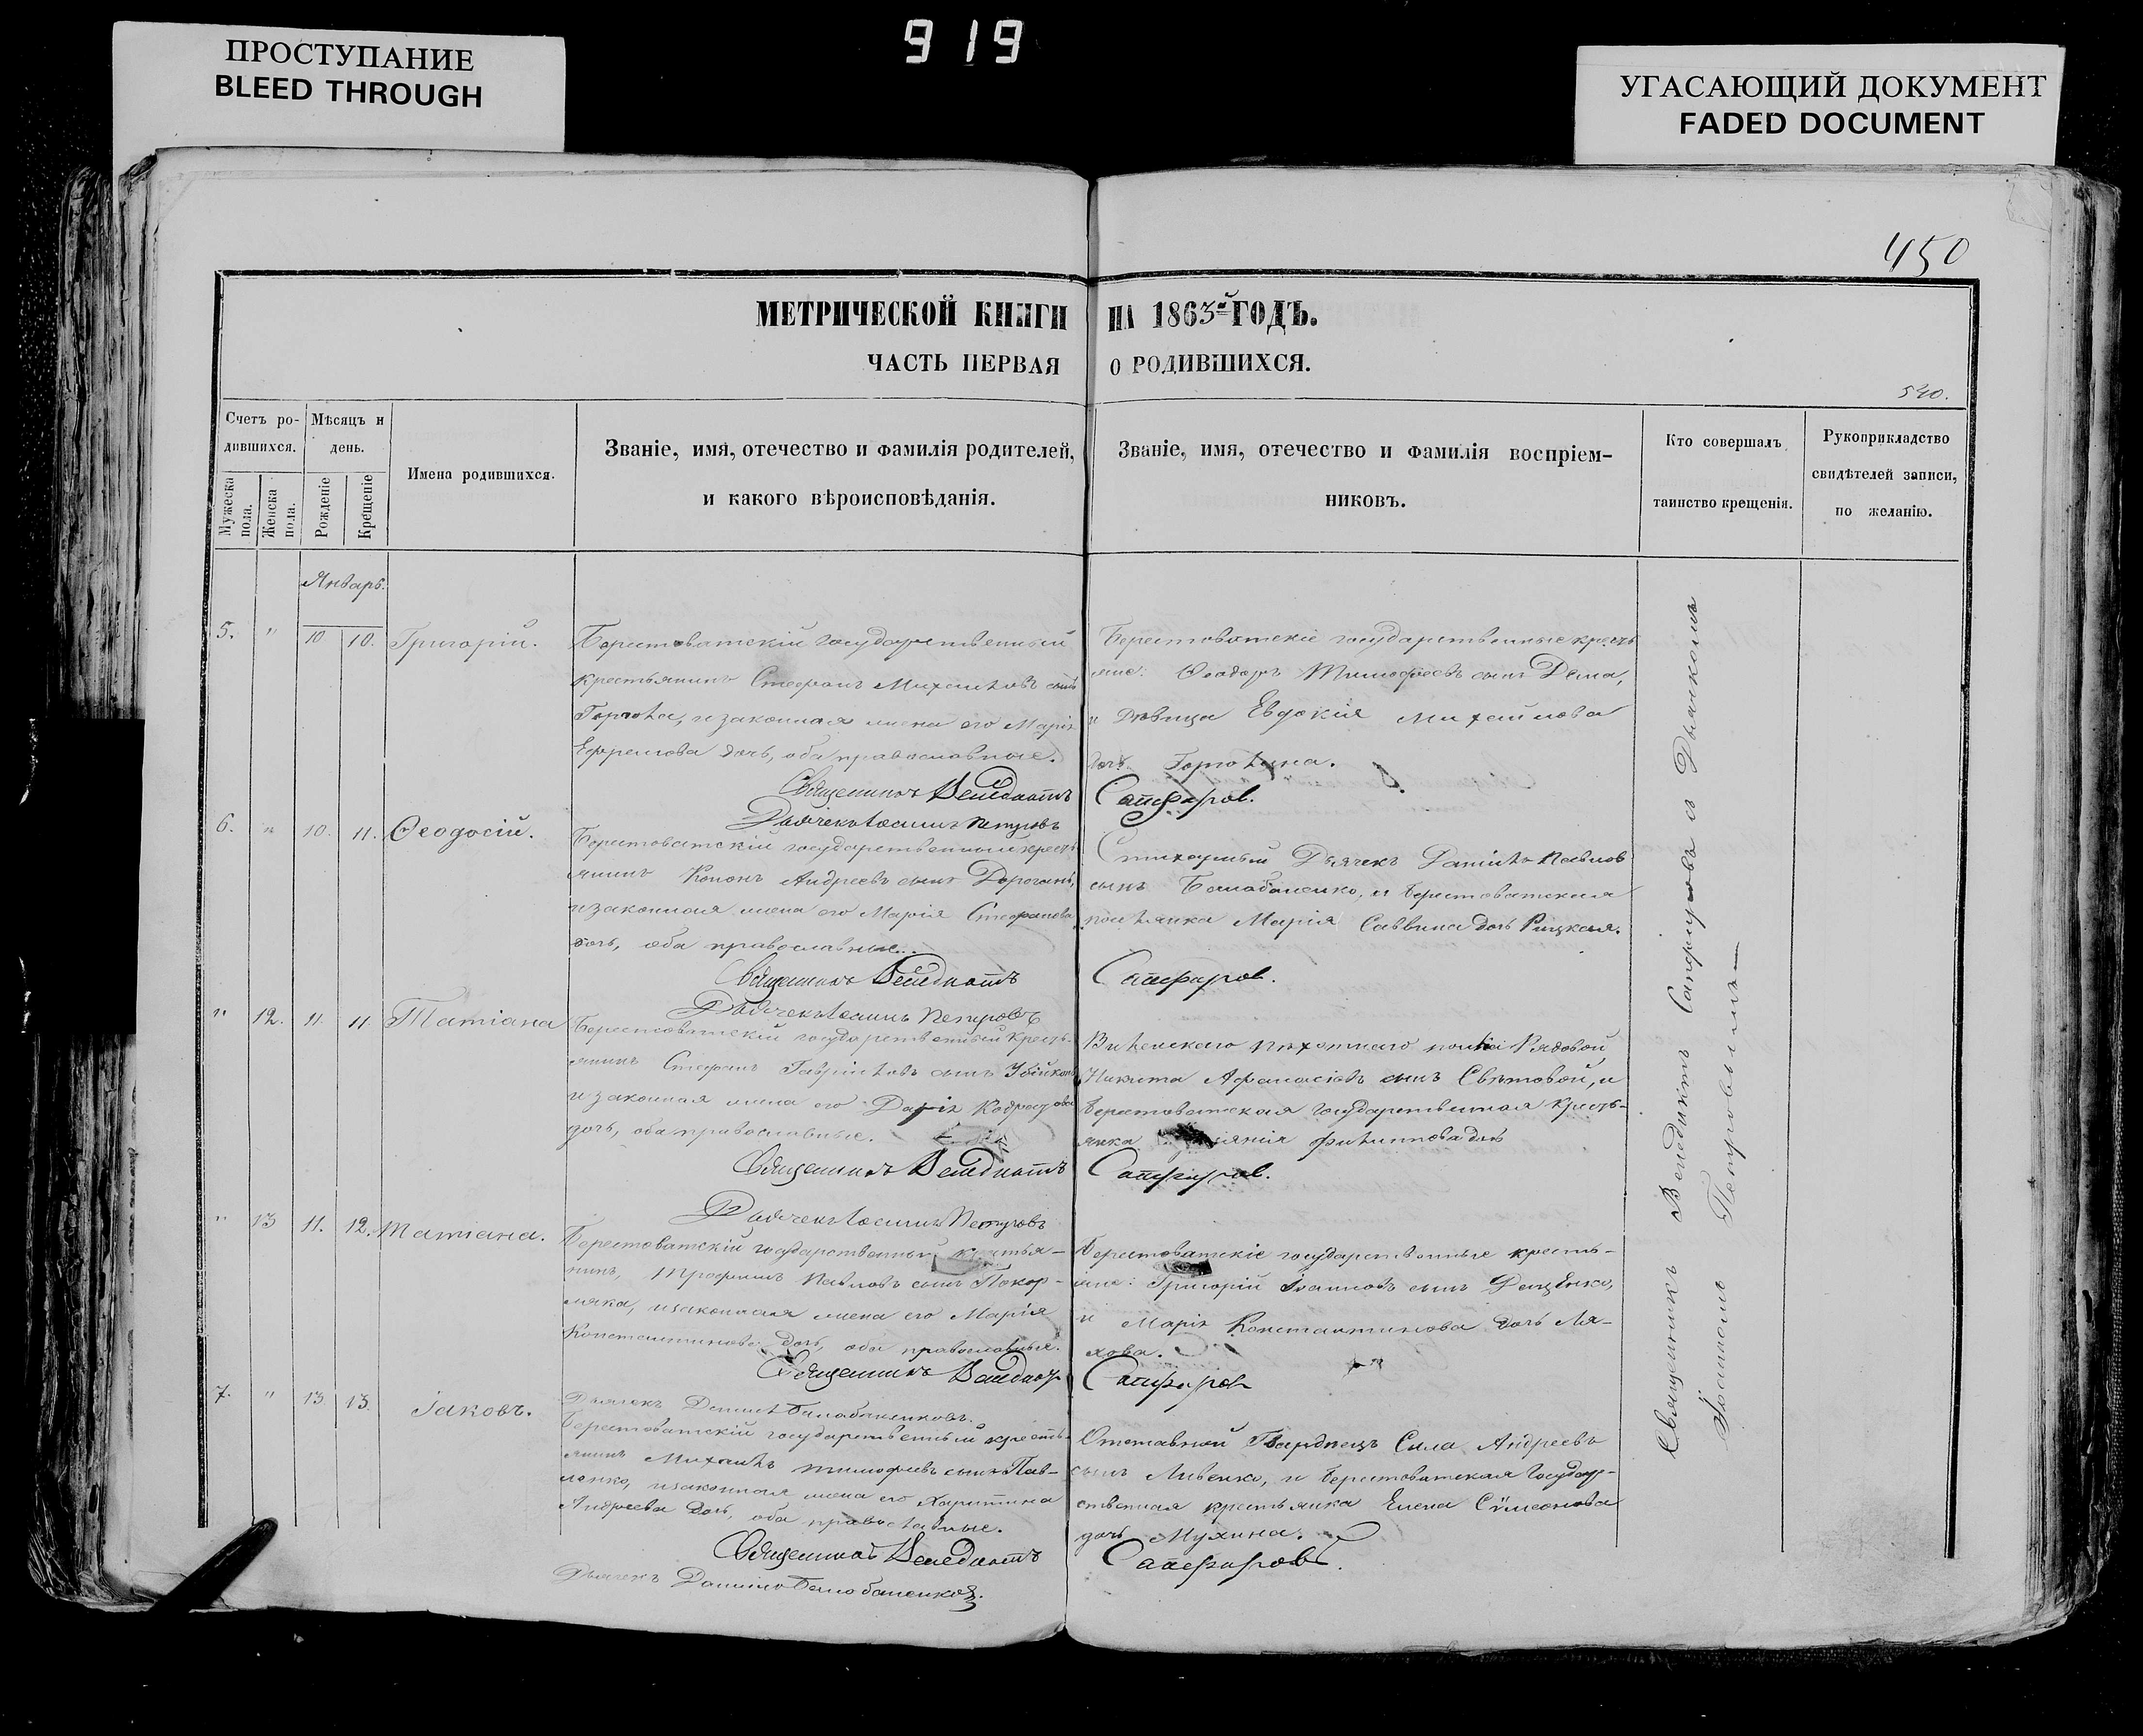 ПРОСТУПАНИЕ
BLEED THROUGH
919
УГАСАЮЩИЙ ДОКУМЕНТ
FADED DOCUMENT
450
МЕТРИЧЕСКОЙ КНИГИ НА 1863й ГОДЪ.
ЧАСТЬ ПЕРВАЯ О РОДИВШИХСЯ.
540.
Счетъ ро-
дившихся.
Мужеска
пола.
Женска
пола.
Мѣсяцъ и
день.
Рожденіе
Крещеніе
Имена родившихся.
Званіе, имя, отечество и фамилія родителей,
и какого вѣроисповѣданія.
Званіе, имя, отечество и фамилія воспріем-
никовъ.
Кто совершалъ
таинство крещенія.
Рукоприкладство
свидѣтелей записи,
по желанію.
Январь.
5. " 10 10. Григорій.
Берестоватскій государственный
крестьянинъ Стефанъ Михаиловъ сынъ
и законная жена его Марія
Ефремова дочь, оба православные.
Священникъ Венедиктъ Сапфировъ.
Дьячекъ Іоаннъ Петровъ
Берестоватскіе государственные кресть
яне: Ѳеодоръ Тимофеевъ сынъ Дема,
и Дѣвица Евдокія Михаилова
дочь
6. " 10. 11. Ѳеодосій.
Берестоватскій государственный кресть
янинъ Кононъ Андреевъ сынъ
и законная жена его Марія Стефанова
дочь, оба православные.
Священникъ Венедиктъ Сапфировъ.
Дьячекъ Іоаннъ Петровъ
Стихарный Дьячекъ Даніилъ Павловъ
сынъ Балабаненко, и Берестоватская
Марія Саввина дочь Рицкая.
" 12. 11. 11. Татіана
Берестоватскій государственный кресть-
янинъ Стефанъ Гавріиловъ сынъ
и законная жена его Дарія
дочь, оба православные.
Священникъ Венедиктъ Сапфировъ.
Дьячекъ Іоаннъ Петровъ
Виленскаго пѣхотнаго полка Рядовой
Никита Афанасіевъ сынъ Свѣтовой, и
Берестоватская государственная кресть-
янка Филиппова дочь
" 13 11. 12. Татіана.
Берестоватскій государственный крестья-
нинъ, Трофимъ Павловъ сынъ Покор-
мяка, и законная жена его Марія
Константинова дочь, оба православные.
Священникъ Венедиктъ Сапфировъ
Дьячекъ Даніилъ Балабаненковъ.
Берестоватскіе государственные кресть-
яне: Григорій Іоанновъ сынъ Доценко,
и Марія Константинова дочь Ля-
хова.
7. " 13. 13. Іаковъ.
Берестоватскій государственный кресть-
янинъ Михаилъ Тимофеевъ сынъ Пав-
ленко, и законная жена его Харитина
Андреева дочь, оба православные.
Священникъ Венедиктъ Сапфировъ.
Дьячекъ Даніилъ Балабаненковъ.
Отставной Гвардеецъ Сила Андреевъ
сынъ Ливенко, и Берестоватская Государ-
ственная крестьянка Елена Сѵмеонова
дочь Мухина.
Священникъ Венедиктъ Сапфировъ съ Дьячкомъ
Іоанномъ Петровымъ